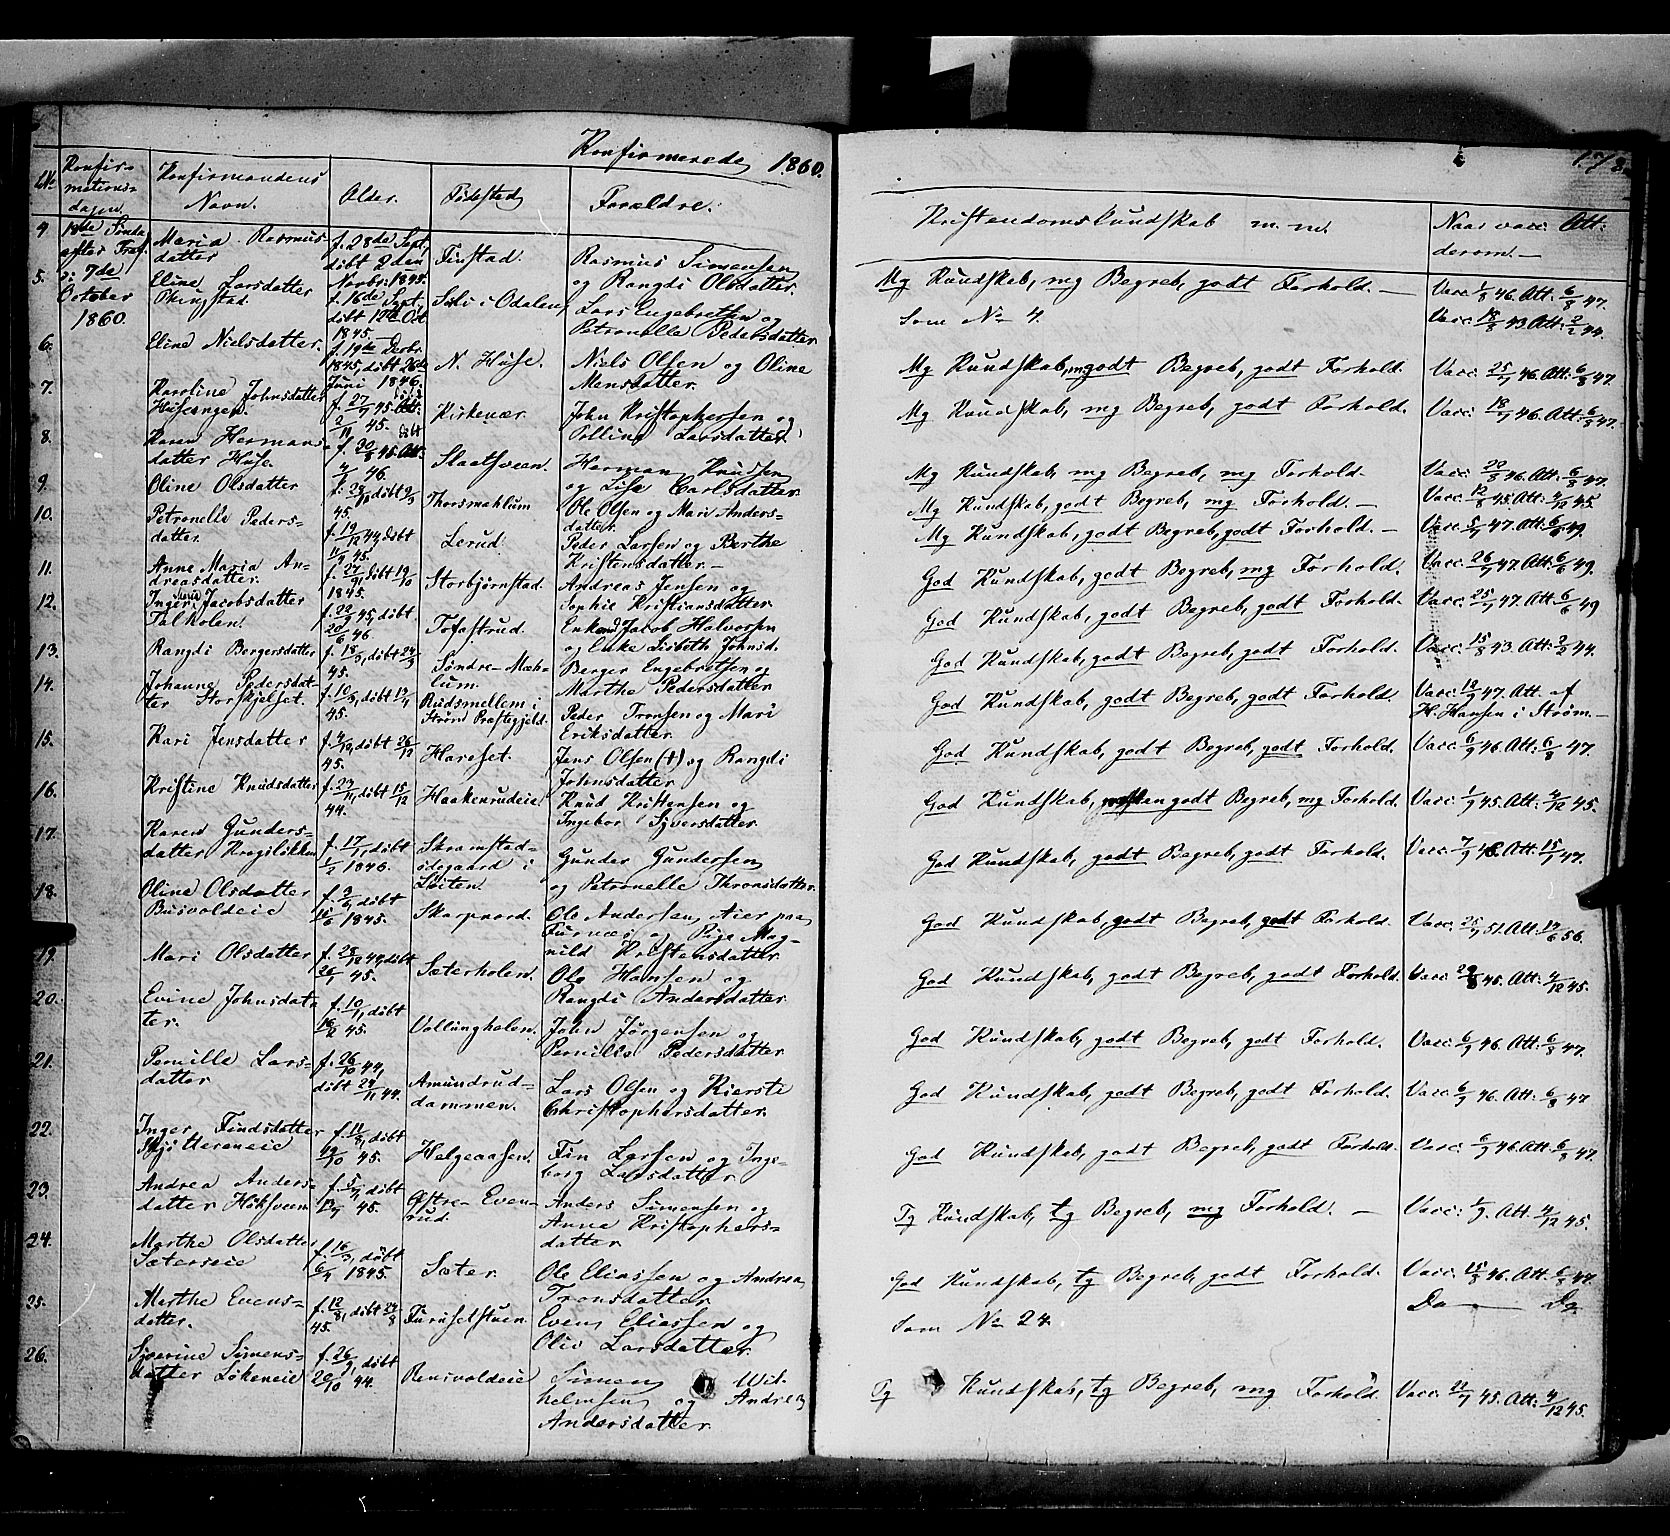 Konfirmerede 1860.
No
Konfir-
mations-
dagen.
Konfirmandens
Navn.
Alder.
Fødested
Forældre.
Kristendomskundskab m. m.
Naar vacc: Att:
derom.
4.
18de Sønda
efter Tref.
Maria Rasmus-
datter
f. 28de Sept,
døbt 2den
Novbr: 1845.
Finstad.
Rasmus Simensen
og Rangdi Olsdatter.
Mg Kundskab, mg Begreb, godt Forhold. —
Vacc. 1/8 46. Att. 6/8 47.
5.
7de
October
1860.
Eline Larsdatter
f. 16de Sept.
døbt 12te Oct
1845.
i Odalen
Lars Engebretsen og
Petronelle Pedersdatter
Som No 4.
Vacc. 18/8 43 Att: 2/2 44.
6.
Eline Nielsdatter.
f. 19de Decbr.
1845, døbt 28de
Juni 1846.
N. Huse.
Niels Olsen og Oline
Mensdatter.
Mg Kundskab, godt Begreb, godt Forhold.
Vacc. 25/7 46. Att: 6/8 47.
7.
Karoline Johnsdatter
Husengen.
f. 27/7 45
2/11 45.
Kirkenær.
John Kristophersen og
Larsdatter
Mg Kundskab, mg Begreb, godt Forhold.
Vacc: 18/7 46. Att: 6/8 47.
8.
Karen Hermans-
datter Huse.
f. 30/8 45 døbt
4/ 46.
Slaatsveen.
Herman Knudsen
og Lise Carlsdatter
Mg Kundskab, mg Begreb, mg Forhold.
Vacc: 22/8 46. Att: 6/8 47.
9.
Oline Olsdatter
45.
Thorsmæhlum
Ole Olsen og Mari Anders-
datter.
Mg Kundskab, godt Begreb, mg Forhold. —
Vacc: 12/8 45. Att: 4/12 45.
10.
Petronelle Peders-
datter
f. 19/12 44, døbt
45.
Lerud.
Peder Larsen og Berthe
Kristensdatter. —
Mg Kundskab, godt Begreb, godt Forhold. —
Vacc: 5/7 47. Att: 6/6 49.
11.
Anne Maria An-
dreasdatter.
f. 27/9, døbt 19/10
1845.
Storbjørnstad.
Andreas Jensen og
Sophie Kristiansdatter
God Kundskab, godt Begreb, mg Forhold.
Vacc: 26/7 47. Att: 6/6 49.
12.
Inger Jacobsdatter
f. 22/9 45, døbt
20/6 46.
Tofastrud.
Enkemd Jacob Halvorsen
og Enke Lisbeth Johnsd.
God Kundskab, godt Begreb, godt Forhold.
Vacc: 25/7 47. Att: 6/6 49
13.
Rangdi Bergersdatter
f. 18/3, døbt 24/3
45.
Søndre Mæh-
lum.
Berger Engebretsen og
Marthe Pedersdatter
God Kundskab, godt Begreb, godt Forhold.
Vacc: 15/8 43. Att: 2/2 44.
14.
Johanne Pedersdat-
ter Storskjelset.
f. 10/3, døbt 13/4
45.
Rudsmellem i
Strøm Præstegjeld.
Peder Tronsen og Mari
Eriksdatter
God Kundskab, godt Begreb, godt Forhold.
Vacc: 12/9 47. Att. af
H. Hansen i Strøm. —
15.
Kari Jensdatter
f. 4/12, døbt 26/12
45.
Hareset.
Jens Olsen (†) og Rangdi
Johnsdatter
God Kundskab, godt Begreb, godt Forhold.
Vacc: 6/9 46. Att: 6/8 47.
16.
Kristine Knudsdatter
f. 23/11, døbt 15/12
44.
Haakenrudeie
Knud Kristensen og
Ingebor Syversdatter.
God Kundskab, godt Begreb, mg Forhold.
Vacc: 1/9 45. Att: 4/12 45.
17.
Karen Gunders-
datter Krogsløkken
f. 17/1, døbt
1/2 1846.
Skramstad-
ødegaard i
Løiten.
Gunder Gundersen
og Petronelle Thronsdatter.
God Kundskab, godt Begreb, godt Forhold.
Vacc: 7/9 46. Att: 15/1 47.
18.
Oline Olsdatter
Busvoldeie
døbt
1845.
Skarpnord.
Ole Andersen Aier paa
Furnæs og Pige Mag-
nild Kristensdatter
God Kundskab, godt Begreb, godt Forhold.
Vacc: 25/7 51. Att: 14/6 56.
19.
Mari Olsdatter
f. 28/12 44, døbt
26/1 45.
Sæterholen.
Ole Hansen og
Rangdi Andersdatter
God Kundskab, godt Begreb, godt Forhold.
Vacc: 29/8 45. Att: 4/12 45.
20.
Evine Johnsdat-
ter.
f. 10/1, døbt
16/2 45.
Vollungholen.
John Jørgensen og
Pernille Pedersdatter
God Kundskab, godt Begreb, godt Forhold.
Vacc: 6/9 46. Att: 6/8 47.
21.
Pernille Lars-
datter
f. 26/10 44,
døbt 24/11 44.
Amundrud-
dammen.
Lars Olsen og Kierste
Christophersdatter.
God Kundskab, godt Begreb, godt Forhold.
Vacc: 6/9 46. Att: 6/8 47
22.
Inger Findsdatter
f. 11/8, døbt
19/10 45.
Helgeaasen.
Fin Larsen og Inge-
borg Larsdatter
God Kundskab, godt Begreb, godt Forhold.
Vacc: 6/9 46. Att: 6/8 47.
23.
Andrea Anders-
datter Høksveen
døbt
45.
Østre Even-
rud.
Anders Simensen og
Anne Kristophers-
datter
Tg Kundskab, tg Begreb, mg Forhold. —
Vacc: 1/9. Att. 4/12 45.
24.
Marthe Olsdatter
Sæterseie
f. 16/3, døbt
6/4 1845.
Sæter.
Ole Eliassen og Andrea
Tronsdatter
God Kundskab, tg Begreb, godt Forhold.
Vacc: 15/8 46. Att: 6/8 47.
25.
Marthe Evens-
datter.
f. 12/8, døbt 24/8
45.
Furusetstuen.
Even Eliassen og
Olia Larsdatter
Som No 24.
Do — Do
26.
Syverine Simens-
datter Løkeneie
f. 26/9, døbt
20/10 44.
Rensvoldeie
Simen Wil-
helmsen og Andrea
Andersdatter
Tg Kundskab, tg Begreb, mg Forhold.
Vacc: 22/7 45. Att: 4/12 45.